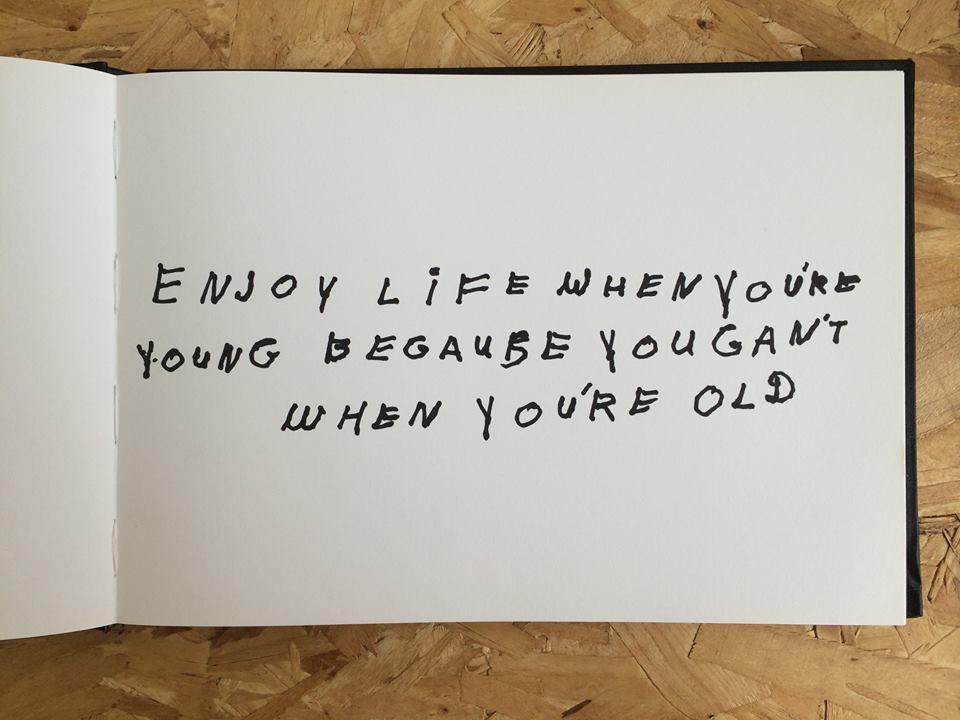 ENJOY LIFE WHEN YOU'RE
YOUNG BECAUSE YOU CAN'T
WHEN YOU'RE OLD